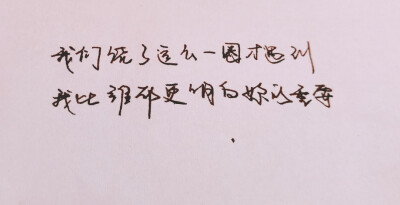 我们绕了这么一圈才遇到
我比谁都更明白妳的重要